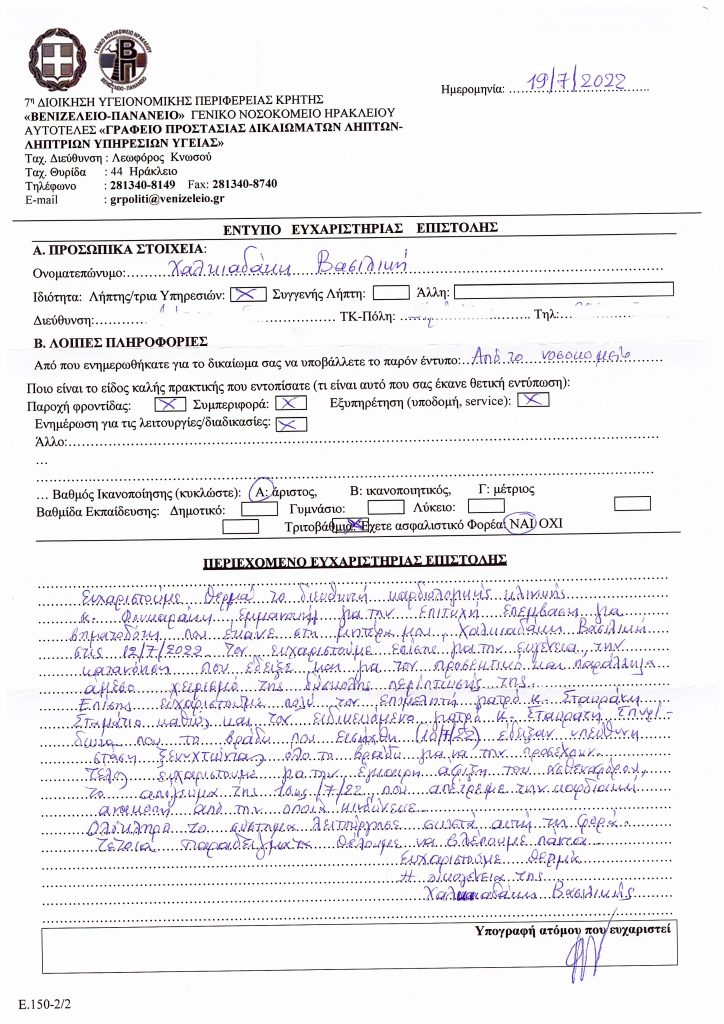 ΓΕΝΙΚΟ ΝΟΣΟΚΟΜΕΙΟ ΗΡΑΚΛΕΙΟΥ
ΒΕΝΙΖΕΛΕΙΟ-ΠΑΝΑΝΕΙΟ
Ημερομηνία: 19/7/2022
7η ΔΙΟΙΚΗΣΗ ΥΓΕΙΟΝΟΜΙΚΗΣ ΠΕΡΙΦΕΡΕΙΑΣ ΚΡΗΤΗΣ
«ΒΕΝΙΖΕΛΕΙΟ-ΠΑΝΑΝΕΙΟ» ΓΕΝΙΚΟ ΝΟΣΟΚΟΜΕΙΟ ΗΡΑΚΛΕΙΟΥ
ΑΥΤΟΤΕΛΕΣ «ΓΡΑΦΕΙΟ ΠΡΟΣΤΑΣΙΑΣ ΔΙΚΑΙΩΜΑΤΩΝ ΛΗΠΤΩΝ-
ΛΗΠΤΡΙΩΝ ΥΠΗΡΕΣΙΩΝ ΥΓΕΙΑΣ»
Ταχ. Διεύθυνση : Λεωφόρος Κνωσού
Ταχ. Θυρίδα : 44 Ηράκλειο
Τηλέφωνο : 281340-8149 Fax: 281340-8740
E-mail : grpoliti@venizeleio.gr
ΕΝΤΥΠΟ ΕΥΧΑΡΙΣΤΗΡΙΑΣ ΕΠΙΣΤΟΛΗΣ
Α. ΠΡΟΣΩΠΙΚΑ ΣΤΟΙΧΕΙΑ:
Ονοματεπώνυμο: Χαλκιαδάκη Βασιλική
Ιδιότητα: Λήπτης/τρια Υπηρεσιών: Συγγενής Λήπτη: Άλλη:
Διεύθυνση: ΤΚ-Πόλη: Τηλ:
Β. ΛΟΙΠΕΣ ΠΛΗΡΟΦΟΡΙΕΣ
Από που ενημερωθήκατε για το δικαίωμα σας να υποβάλλετε το παρόν έντυπο: Από το νοσοκομείο
Ποιο είναι το είδος καλής πρακτικής που εντοπίσατε (τι είναι αυτό που σας έκανε θετική εντύπωση):
Παροχή φροντίδας: Συμπεριφορά: Εξυπηρέτηση (υποδομή, service):
Ενημέρωση για τις λειτουργίες/διαδικασίες:
Άλλο:
…
… Βαθμός Ικανοποίησης (κυκλώστε): Α: άριστος, Β: ικανοποιητικός, Γ: μέτριος
Βαθμίδα Εκπαίδευσης: Δημοτικό: Γυμνάσιο: Λύκειο:
Τριτοβάθμια: Έχετε ασφαλιστικό Φορέα: ΝΑΙ ΟΧΙ
ΠΕΡΙΕΧΟΜΕΝΟ ΕΥΧΑΡΙΣΤΗΡΙΑΣ ΕΠΙΣΤΟΛΗΣ
Ευχαριστούμε θερμά το διευθυντή καρδιολογικής κλινικής
κ. Εμμανουήλ για την επιτυχή επέμβαση για
βηματοδότη που έκανε στη μητέρα μου, Χαλκιαδάκη Βασιλική
στις 12/7/2022 τον ευχαριστούμε επίσης για την ευγένεια, την
κατανόηση που έδειξε και για τον προσεκτικό και παράλληλα
άμεσο χειρισμό της δύσκολης περίπτωσής της.
Επίσης ευχαριστούμε πολύ τον επιμελητή γιατρό κ. Σταυράκη
Σταμάτιο καθώς και τον ειδικευόμενο γιατρό κ. Σταυράκη Σπυρί-
δωνα που το βράδυ που εισήχθη (10/7/22) έδειξαν υπεύθυνη
στάση ξενυχτώντας όλο το βράδυ για να την προσέχουν.
Τέλος ευχαριστούμε για την έγκαιρη άφιξη του ασθενοφόρου,
το απόγευμα της 10ης/7/22 που απέτρεψε την καρδιακή
ανακοπή από την οποία κινδύνευε.
Ολόκληρο το σύστημα λειτούργησε σωστά αυτή τη φορά.
Τέτοια παραδείγματα θέλουμε να βλέπουμε πάντα.
Ευχαριστούμε θερμά
Η οικογένεια της
Χαλκιαδάκη Βασιλικής
Υπογραφή ατόμου που ευχαριστεί
Ε.150-2/2